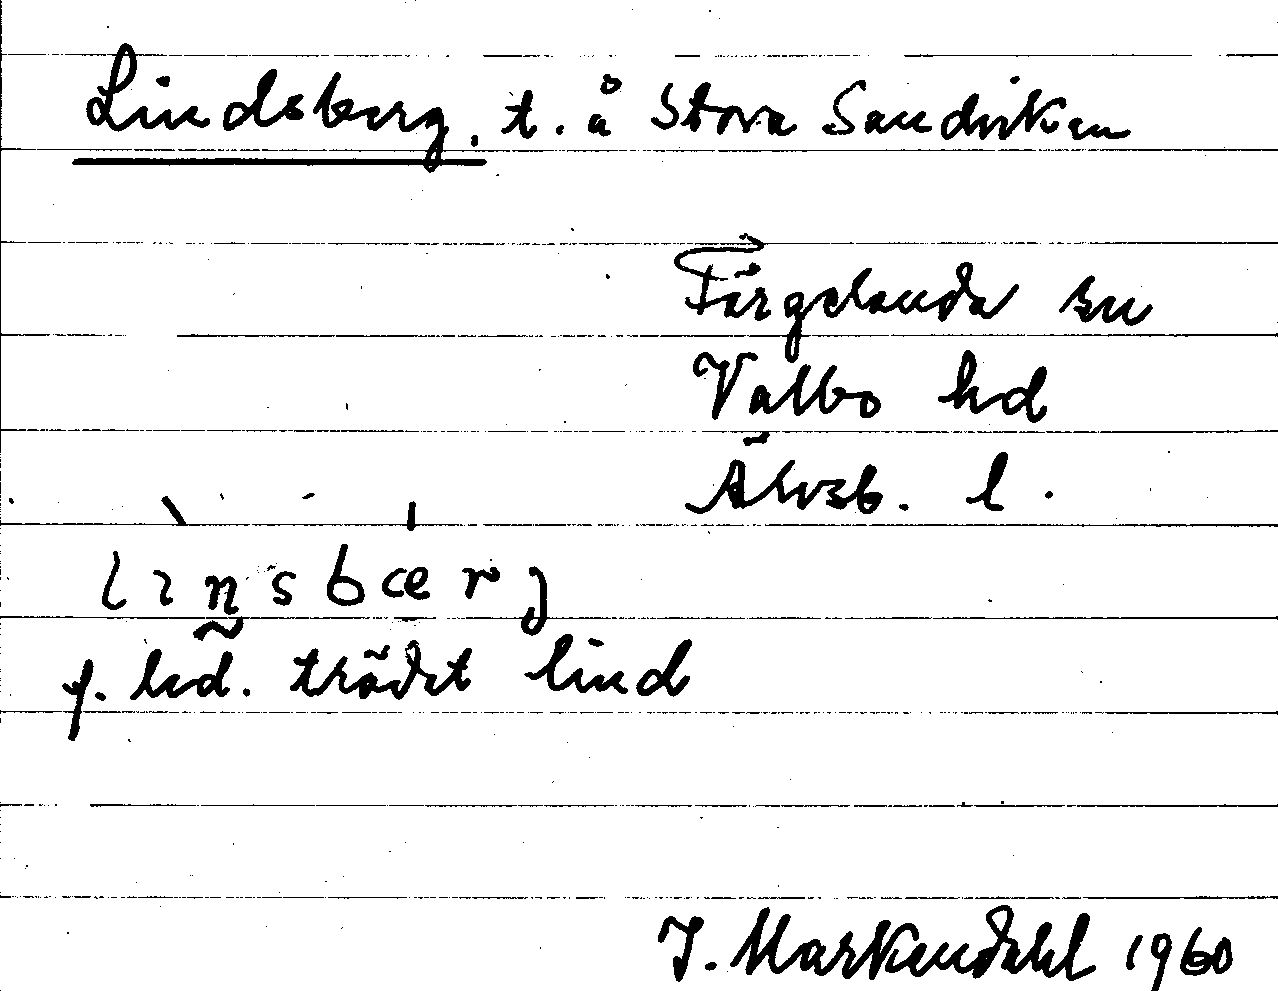 Lindsberg, t. å Stora Sandviken
Färgelanda sn
Valbo hd
Älvsb. l.
lìnsbær̍j
f. led. trädet lind
J. Markendahl 1960